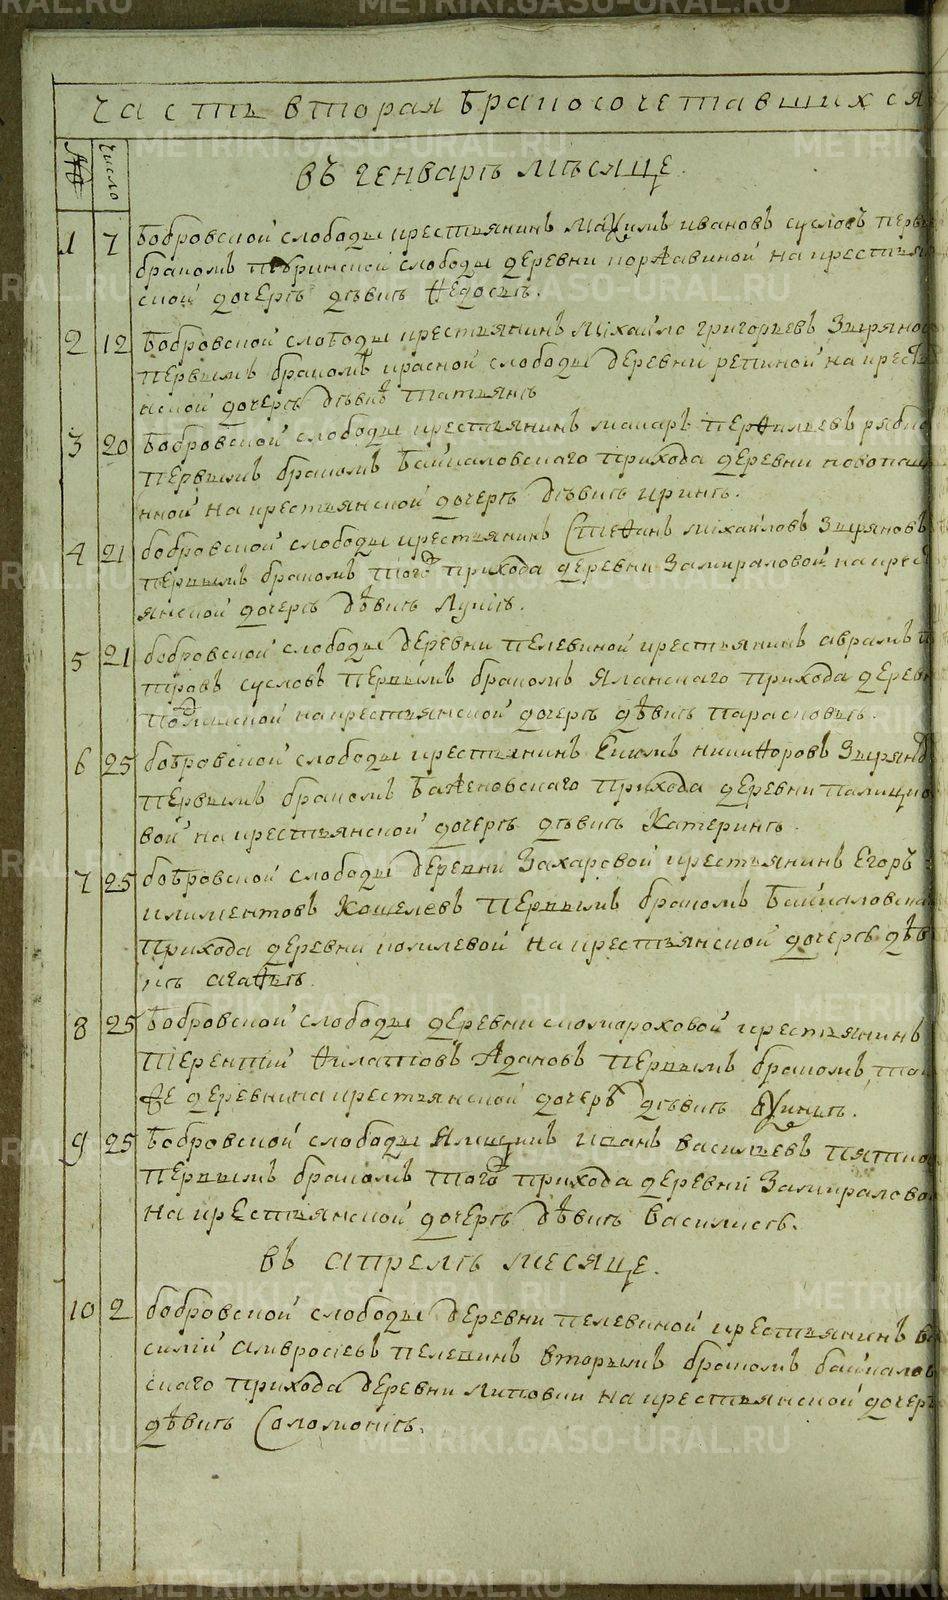 Часть вторая бракосочетавшихся
№ число
въ генварѣ мѣсяце.
1 7 бобровской слободы крестьянинъ Маѯимъ ивановъ сусловъ
бракомъ слободы деревни коржавиной на
ской дочерѣ дѣвкѣ Ѳедосьѣ.
2 12 бобровской слободы крестьянинъ Михайло григорьевъ
первымъ бракомъ красной слободы деревни репиной на
нской дочерѣ дѣвкѣ татьянѣ
3 20 бобровской слободы крестьянинъ макаръ перѳильевъ
первымъ бракомъ байкаловскаго прихода деревни
нной на крестьянской дочерѣ дѣвкѣ иринѣ.
4 21 бобровской слободы крестьянинъ Стеѳанъ михайловъ Зыряновъ
первымъ бракомъ того прихода деревни Замираловой на
янской дочерѣ дѣвкѣ Лукіѣ.
5 21 бобровской слободы деревни пелевиной крестьянинъ аврамъ
сусловъ первымъ бракомъ Яланскаго прихода
на крестьянской дочерѣ дѣвкѣ парасковьѣ.
6 25 бобровской слободы крестьянинъ Екимъ никиѳоровъ
первымъ бракомъ баженовскаго прихода деревни
вой на крестьянской дочерѣ дѣвкѣ Катеринѣ.
7 25 бобровской слободы деревни Захаровой крестьянинъ Егоръ
климентовъ Кошелевъ первымъ бракомъ
прихода деревни комлевой на крестьянской дочерѣ
кѣ агаѳьѣ.
8 25 бобровской слободы деревни скомороховой крестьянинъ
терентий Ѳилатовъ Адановъ первымъ бракомъ
же деревни на крестьянской дочерѣ дѣвкѣ
9 25 бобровской слободы Ямщикъ иванъ васильевъ
первымъ бракомъ того прихода деревни
на крестьянской дочерѣ дѣвкѣ василисѣ.
въ апрелѣ месяце.
10 2 бобровской слободы деревни пелевиной крестьянинъ ва
силий амвросіевъ пелевинъ вторымъ бракомъ байкалов
скаго прихода деревни липовки на крестьянской дочерѣ
дѣвкѣ Соломоніѣ.
METRIKI.GASO-URAL.RU